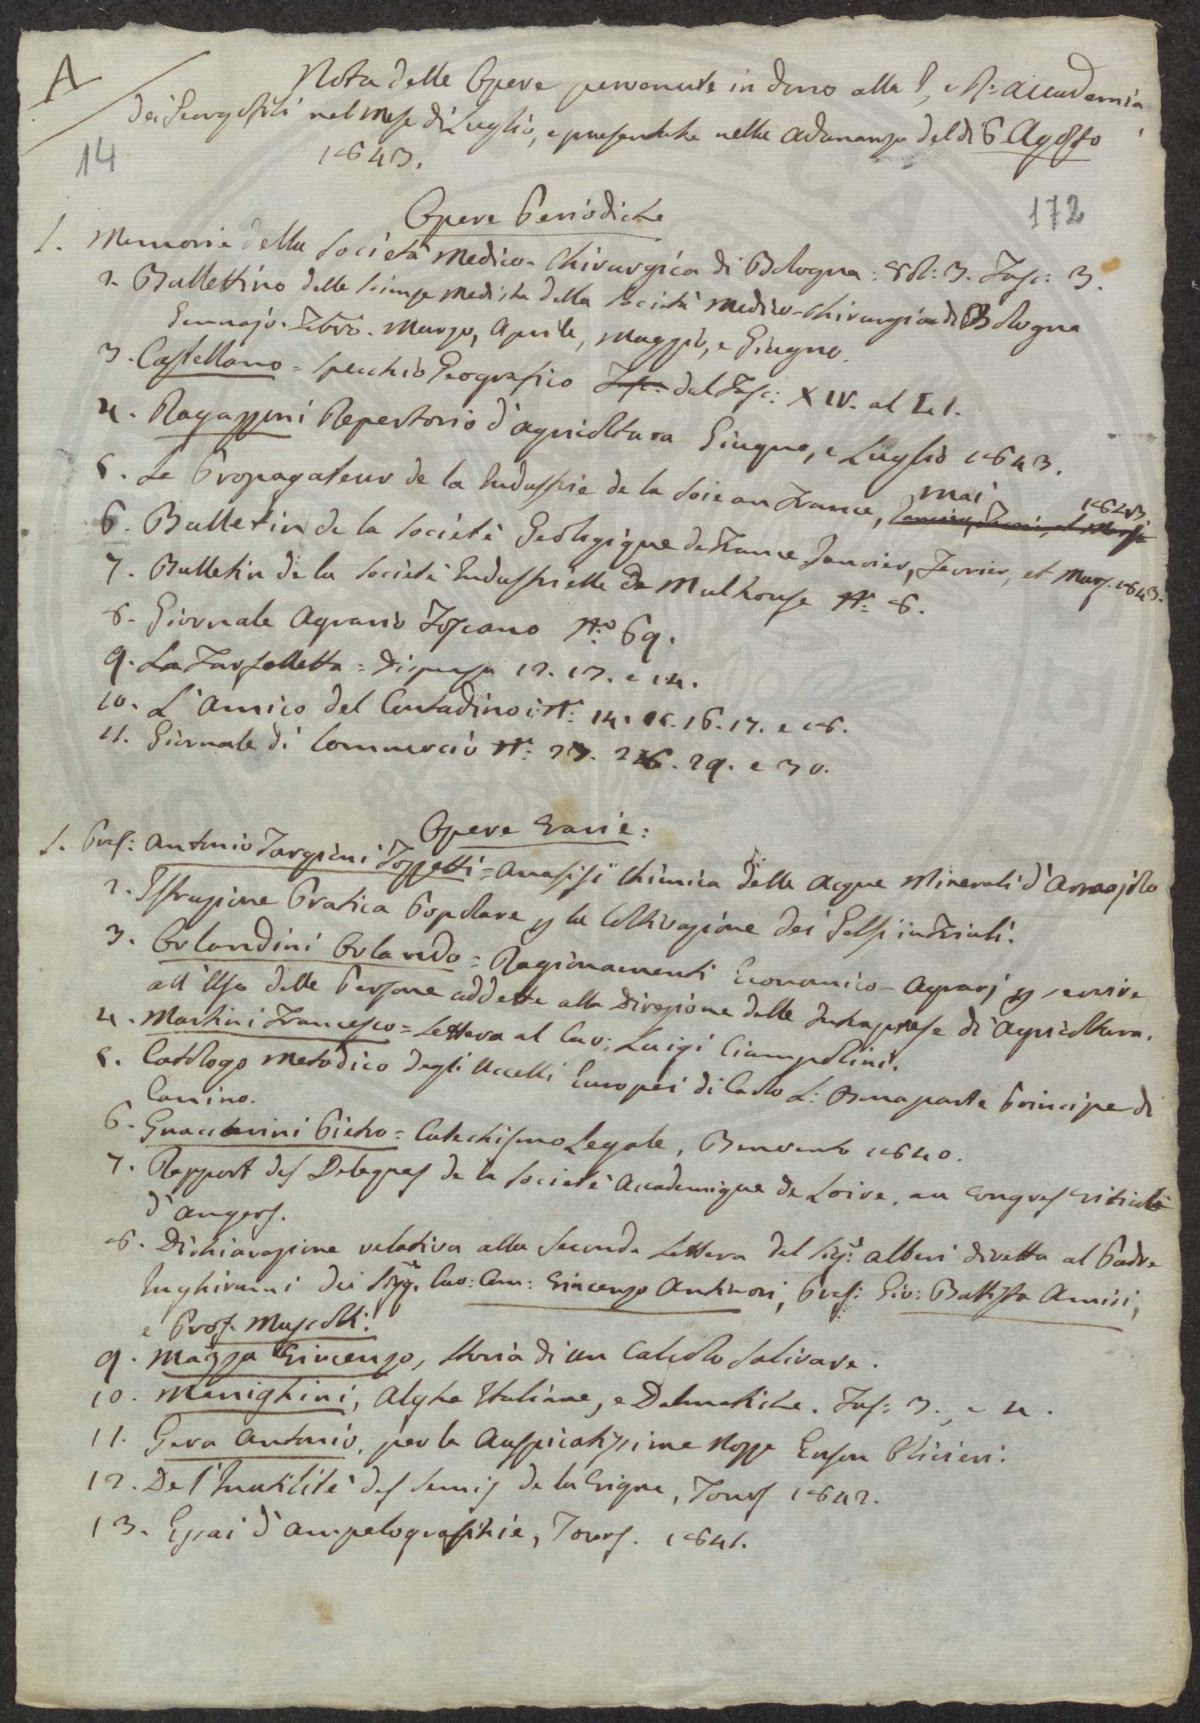 A
Nota delle Opere pervenute in dono alla I. e R: Accademia
dei Georgofili nel mese di Luglio, e presentate nella adunanza del dì 6 Agosto
1843.
14
172
Opere Periodiche
1. Memorie della Società Medico-Chirurgica di Bologna: Vol: 3. Fasc: 3.
2. Bullettino delle Scienze Mediche della Società Medico-Chirurgica di Bologna
Gennajo. Febbo. Marzo, Aprile, Maggio, e Giugno.
3. Castellano = Specchio Geografico Fasc: dal Fasc: XIV. al LI.
4. Ragazzini Repertorio d'agricoltura Giugno, e Luglio 1843.
5. Le Propagateur de la Industrie de la Soie en France, Mai 1843
6. Bulletin de la Societè Geologique de France Janvier, Fevrier, et Mars. 1843.
7. Bulletin de la Societè Industrielle de Mulhouse N: 8.
8. Giornale Agrario Toscano No 69.
9. La Farfalletta = Dispensa 12. 13. e 14.
10. L'Amico del Contadino: N: 14. 15. 16. 17. e 18.
11. Giornale di Commercio N: 27. 28. 29. e 30.
Opere Varie:
1. Prof: Antonio Targioni Tozzetti = Analisi Chimica delle Acque Minerali d'Armajolo
2. Istruzione Pratica Popolare p la Coltivazione dei Gelsi in Friuli.
3. Orlandini Orlando = Ragionamenti Economico-Agrarj p servire
all'Uso delle Persone addette alla Direzione delle Intraprese di Agricoltura.
4. Martini Francesco = Lettera al Cav: Luigi Ciampolini.
5. Catalogo Metodico degli Uccelli Europei di Carlo L: Bonaparte Principe di
Canino.
6. Pietro = Catechismo Legale, Benevento 1840.
7. Rapport des Delegues de la Societè Accademique de Loire, au Congres Viticole
d'Angers.
8. Dichiarazione relativa alla Seconda Lettera del Sige: Alberi diretta al Padre
Inghirami dei Sigg. Cav: Com: Vincenzo Antinori, Prof: Gio: Battista Amici,
e Prof. Mossotti:
9. Mazza Vincenzo, Storia di un Calcolo Salivare.
10. Menighini, Alghe Italiane, e Dalmatiche. Fas: 3. e 4.
11. Gera Antonio, per le Auspicatissime Nozze Olivieri.
12. De l'Inutilitè des Semis de la Vigne, Tours 1842.
13. Essai d'Ampelographie, Tours. 1841.